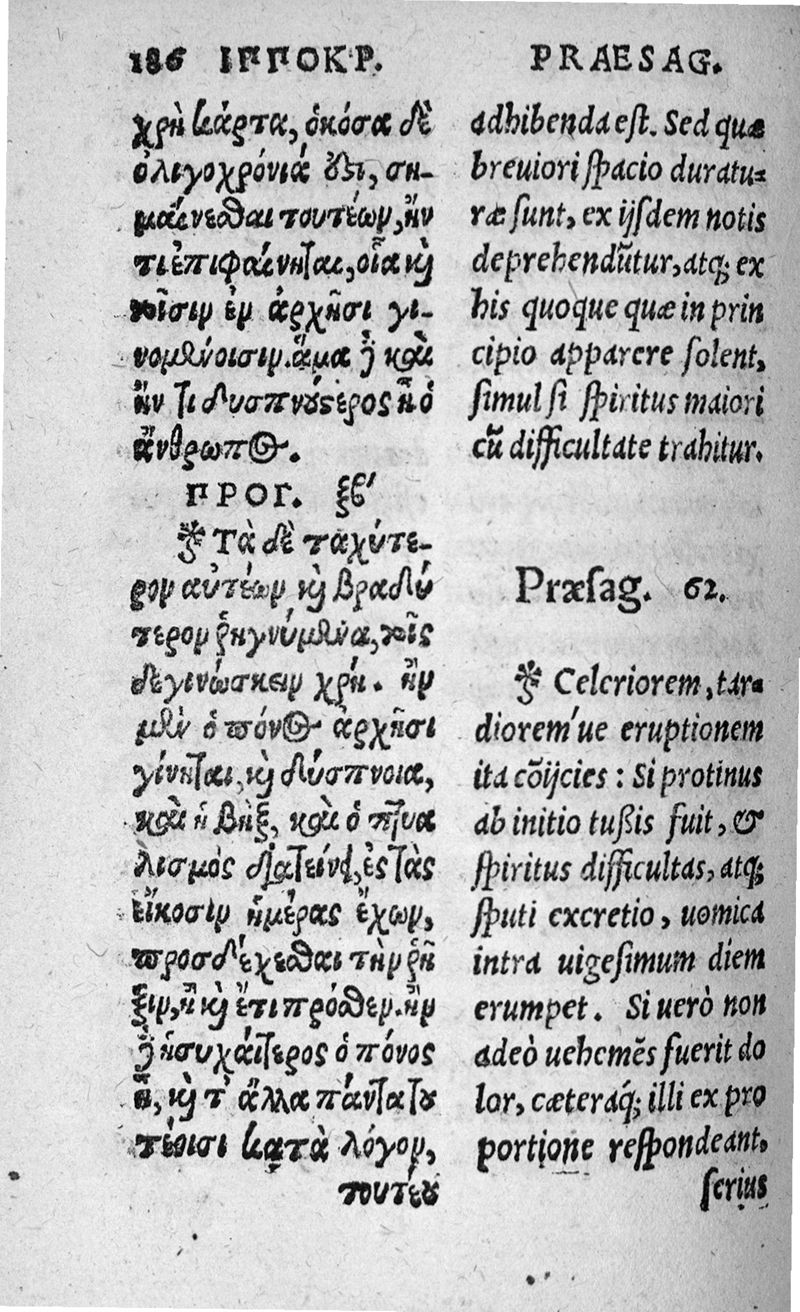 186 ΙΠΠΟΚΡ.
χρὴ κάρτα, ὁκόσα δὲ
ὀλιγοχρόνιά ὅτι, ση-
μαίνεσθαι τουτέων, ἤν
τι ἐπιφαίνηται, οἷα καὶ
τοῖσιν ἐν ἀρχῇσι γι-
νομένοισιν. ἅμα δὲ καὶ
ἤν τι δυσπνούστερος ᾖ ὁ
ἄνθρωπος.
ΠΡΟΓ. ξβ'
Τὰ δὲ ταχύτε-
ρον αὐτέων καὶ βραδύ
τερον ῥηγνύμενα, τοῖς
δε γινώσκειν χρή. ἢν
μὲν ὁ πόνος ἀρχῇσι
γίνηται, καὶ δύσπνοια,
καὶ ἡ βὴξ, καὶ ὁ πτυα
λισμός διατείνῃ, ἐς τὰς
εἴκοσιν ἡμέρας ἔχων,
προσδέχεσθαι τὴν ῥῆ
ξιν, ἢ καὶ ἔτι πρόσθεν. ἢν
δὲ ἡσυχαίτερος ὁ πόνος
ᾖ, καὶ τ' ἄλλα πάντα του
τέοισι κατὰ λόγον,
τουτέου
PRAESAG.
adhibenda est. Sed quæ
breuiori spacio duratu-
ræ sunt, ex ijsdem notis
deprehendũtur, atq; ex
his quoque quæ in prin
cipio apparere solent,
simul si spiritus maiori
cũ difficultate trahitur.
Præsag. 62.
Celeriorem, tar-
diorem'ue eruptionem
ita cõijcies: Si protinus
ab initio tußis fuit, &
spiritus difficultas, atq;
sputi excretio, uomica
intra uigesimum diem
erumpet. Si uerò non
adeò uehemẽs fuerit do
lor, cæteraq́; illi ex pro
portione respondeant,
serius